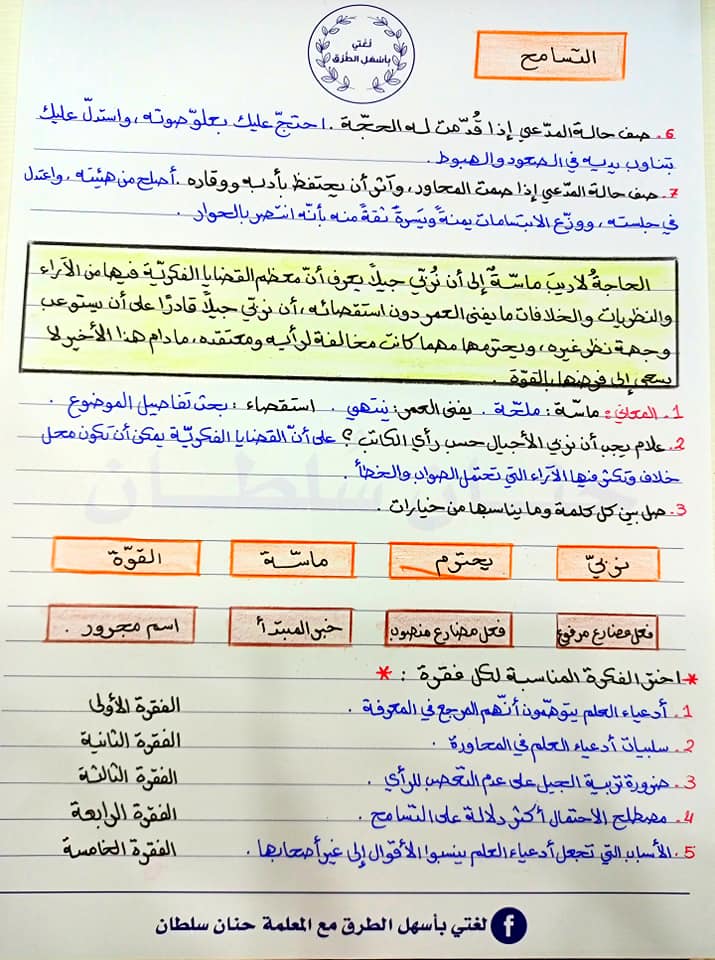 لغتي
بأسهل الطرق
التسامح
6. صف حالة المدّعي إذا قُدّمت له الحجّة. احتجّ عليك بعلوّ صوته، واستدلّ عليك
بتناوب يديه في الصعود والهبوط.
7. صف حالة المدّعي إذا صمت المحاور، وآثر أن يحتفظ بأدبه ووقاره. أصلح من هيئته، واعتدل
في جلسته، ووزّع الابتسامات يمنةً ويسرةً ثقةً منه بأنّه انتصر بالحوار.
الحاجة لاديبَ ماسّةٌ إلى أن نُربّي جيلاً يعرف أنّ معظم القضايا الفكريّة فيها من الآراء
والنظريات والخلافات ما يفنى العمر دون استقصائه، أن نربّي جيلاً قادرًا على أن يستوعب
وجهة نظر غيره، ويحترمها مهما كانت مخالفة لرأيه ومعتقده، مادام هذا الأخير لا
يسعى إلى فرضها بالقوّة.
1. المعاني: ماسّة: ملحّة. يفنى العمر: ينتهي. استقصاء: بحث تفاصيل الموضوع.
2. علام يجب أن نربي الأجيال حسب رأي الكاتب؟ على أنّ القضايا الفكريّة يمكن أن تكون محل
خلاف وتكثر فيها الآراء التي تحتمل الصواب والخطأ
حنان سلطان
3. صل بين كل كلمة وما يناسبها من خيارات.
نربّيَ يحترم ماسّة القوّة
فعل مضارع مرفوع فعل مضارع منصوب خبر المبتدأ اسم مجرور.
* اختر الفكرة المناسبة لكل فقرة: *
1. أدعياء العلم يتوهّمون أنّهم المرجع في المعرفة. الفقرة الأولى
2. سلبيات أدعياء العلم في المحاورة. الفقرة الثانية
3. ضرورة تربية الجيل على عدم التعصب للرأي. الفقرة الثالثة
4. مصطلح الاحتمال أكثر دلالة على التسامح. الفقرة الرابعة
5. الأسباب التي تجعل أدعياء العلم ينسبوا الأقوال إلى غير أصحابها. الفقرة الخامسة
لغتي بأسهل الطرق مع المعلمة حنان سلطان